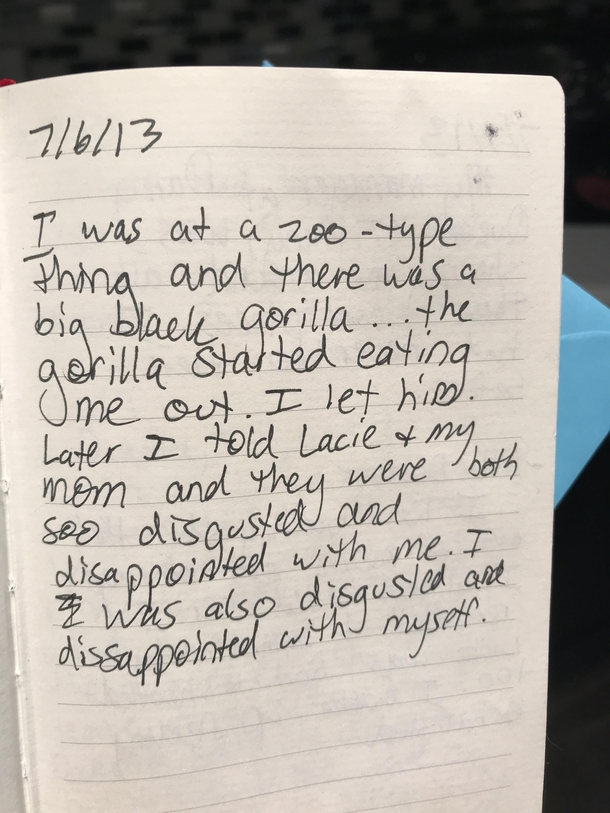 7/6/13
I was at a zoo-type
thing and there was a
big black gorilla ... the
gorilla started eating
me out. I let him.
Later I told Lacie & my
mom and they were both
soo disgusted and
disappointed with me. I
I was also disgusted and
dissappointed with myself.